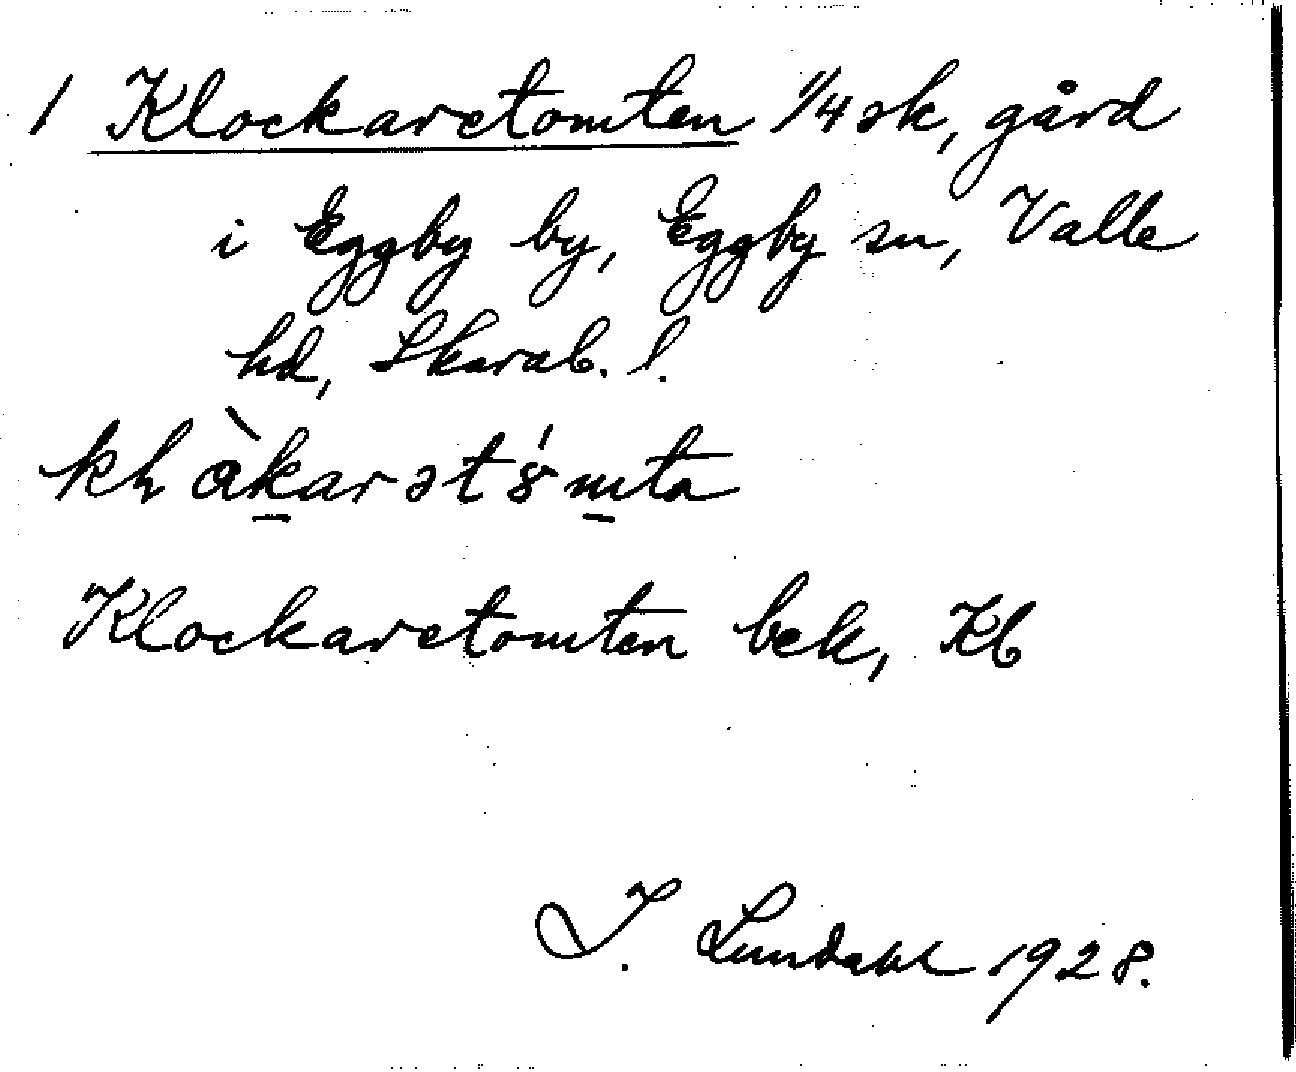 1 Klockaretomten 1/4 sk, gård
i Eggby by, Eggby sn, Valle
hd, Skarab. l.
Klockaretomten bek, Kb
I. Lundahl 1928.